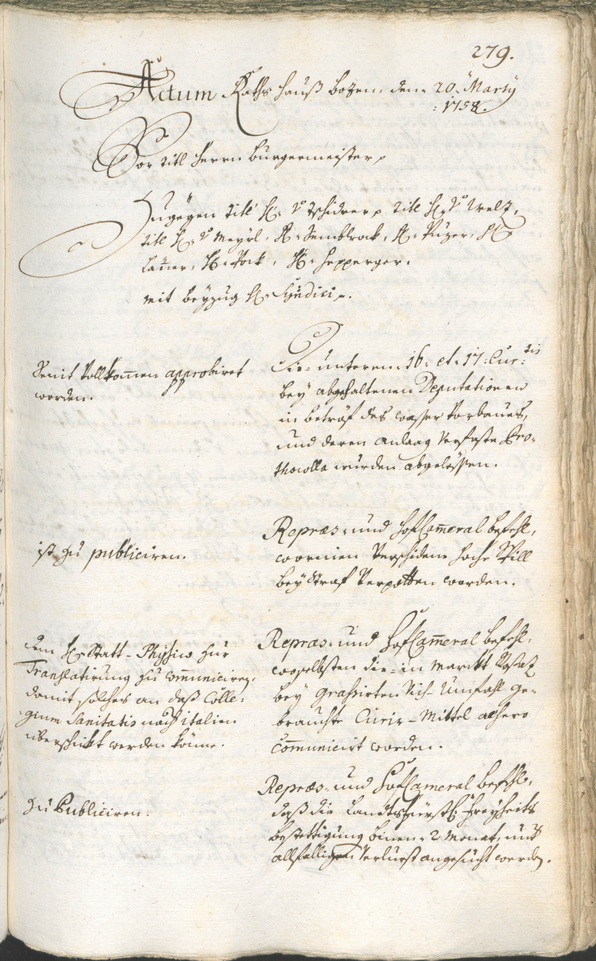 279.
Actum Raths Hauß Bozen, den 20. Marty
1758.
Vor titl Herrn Burgermeister
Zugegen titl H: v: Tschiderer titl H: v: Welz,
titl H: v: Mayrl, H: Semblrock, H: Puzer, H:
Launer, H: Pock, H: Hepperger.
mit beyzug H: Syndici.
Seint Vollkommen approbiret
worden.
Die unterem 16. et 17. Cur:tis
bey abgehaltenen Deputationen
in beträf des wasser Vorbaues,
und deren anlaag Verfaste Pro-
thocolla wurden abgelößen.
ist zu publiciren.
Repræs: und Hof Cameral befehl,
wormien Verschidene hoche Spill
bey Straf Verpotten worden.
dem H: Statt-Physico zur
Translatirung zu communiciren,
damit solches an daß Colle-
gium Sanitatis nach italien
überschickt werden könne.
Repræs: und Hof Cameral befehl,
woselbsten die in
bey grassirten Vich-Umfahl ge-
brauchte Curir-Mittel anhero
communicirt worden.
Zu Publiciren.
Repræs: und Hof Cameral befehl,
daß die Landtsfürstl: Freyheits
bestettigung binen 2 Monat, und
allfälligen Verlurst angesucht werden.